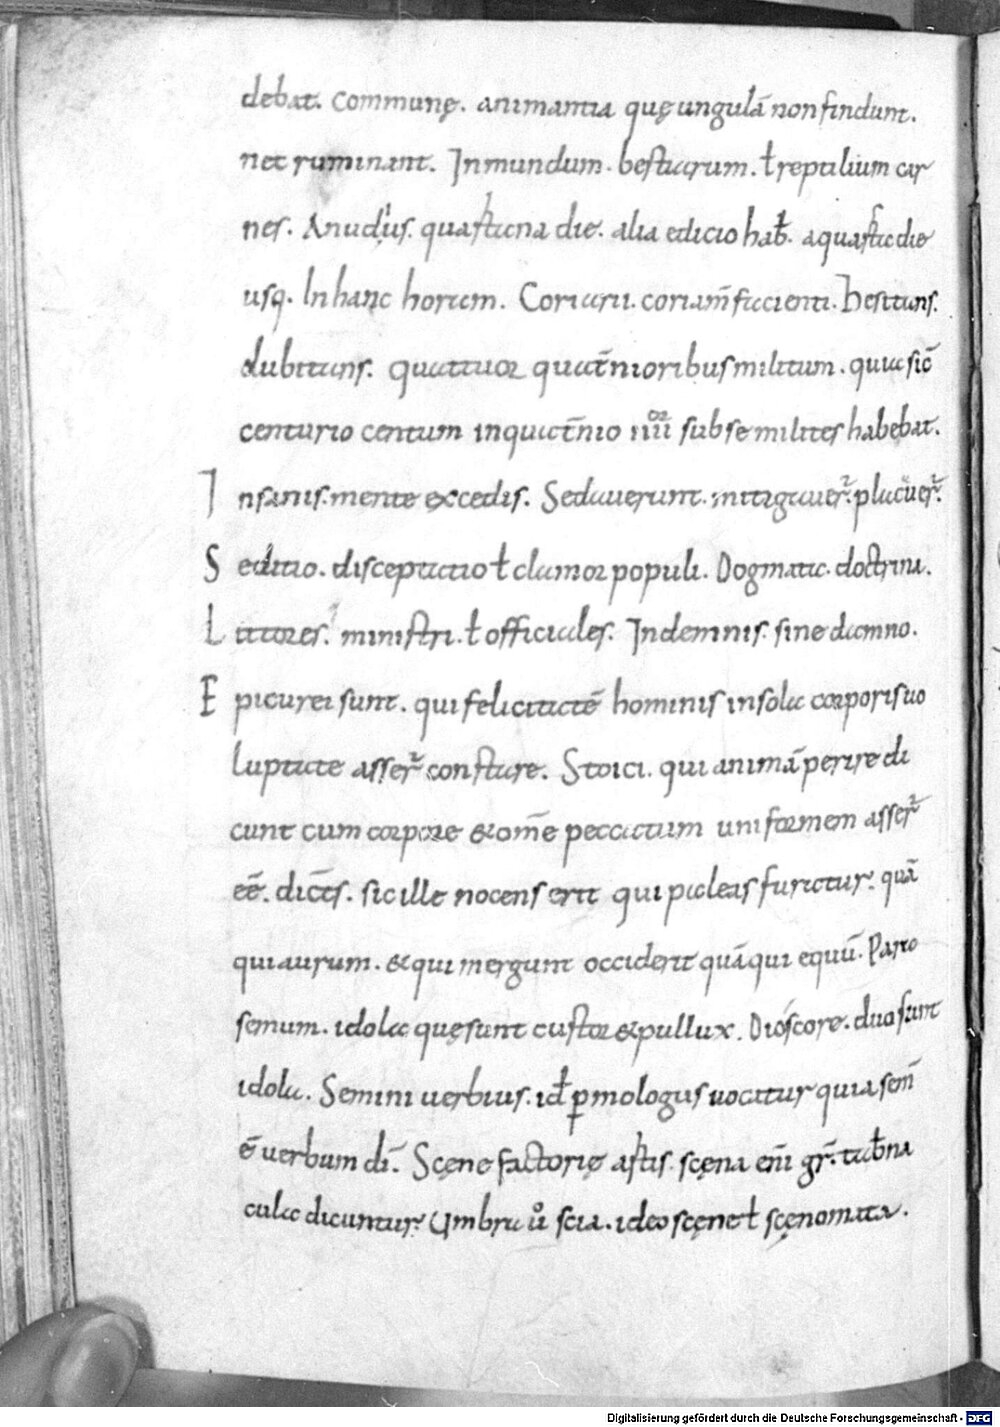 debat. Communę. animantia quę ungulā non findunt.
nec ruminant. Inmundum. bestiarum. ł reptilium car
nes. Anudiꝰ. quarta die. alia edicio hab̄. a quarta die
usq. In hanc horam. Coriarii. coriam̄ facienti. Hesitans.
dubitans. quattuor quat̄nioribus militum. quia sic̄
centurio centum in quat̄nio iiii^or sub se milites habebat.
Insanis. mente excedis. Sedauerunt. mitigauer̄. placuer̄.
Seditio. disceptatio ł clamor populi. Dogmata. doctrina.
Littores. ministri. ł officiales. Indemnis. sine damno.
Epicurei sunt. qui felicitatē hominis in sola corporis uo
luptate asser̄ constare. Stoici. qui animā perire di
cunt cum corpore & om̄e peccatum uniformem asser̄
eē. dic̄tS. sic ille nocens erit qui paleas furatur. quā
qui aurum. & qui mergum occiderit quā qui equū. Paro
semum. idola quę sunt castor & pullux. Dioscore. duo sunt
idola. Semini uerbius. id̄ spermologus uocatur quia sem̄
ē uerbum dī. Scęne factorię astis. scęna eni gr̄. tab̄na
cula dicuntur. Umbra u᷎ scia. ideo scęne ł scęnomata.
Digitalisierung gefördert durch die Deutsche Forschungsgemeinschaft - DFG